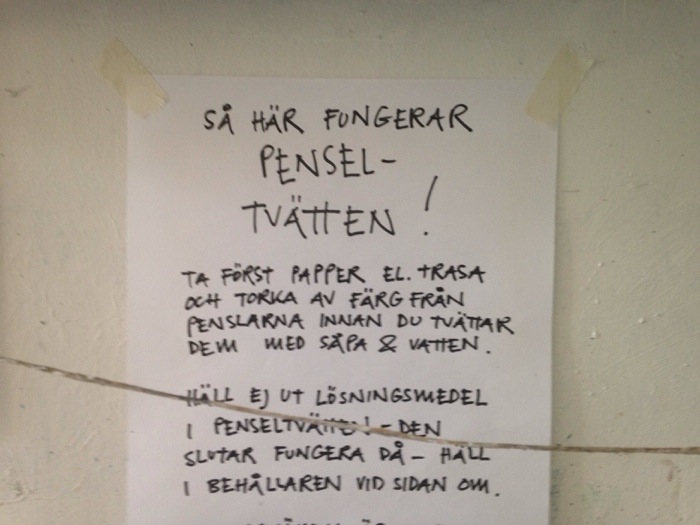 SÅ HÄR FUNGERAR
PENSEL-
TVÄTTEN!
TA FÖRST PAPPER EL. TRASA
OCH TORKA AV FÄRG FRÅN
PENSLARNA INNAN DU TVÄTTAR
DEM MED SÅPA & VATTEN.
HÄLL EJ UT LÖSNINGSMEDEL
I PENSELTVÄTTEN! - DEN
SLUTAR FUNGERA DÅ - HÄLL
I BEHÅLLAREN VID SIDAN OM.